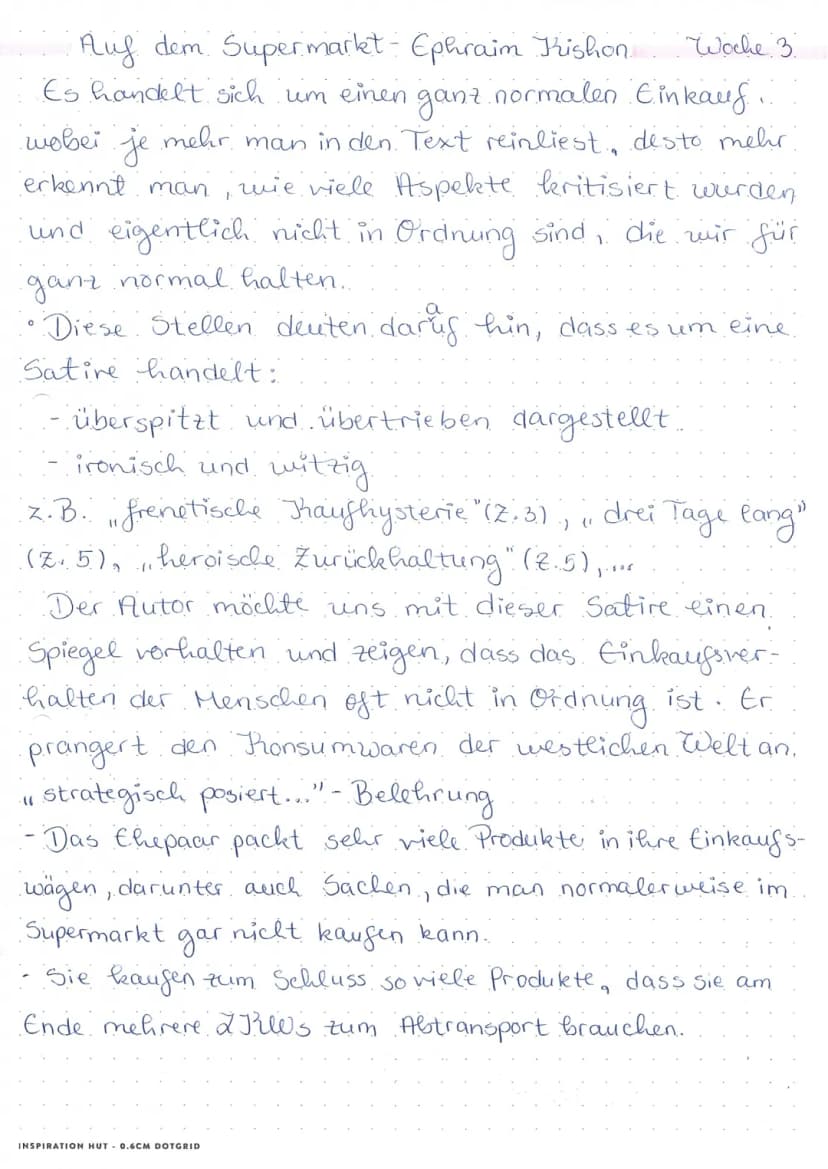 Auf dem Supermarkt - Ephraim Kishon Woche 3
Es handelt sich um einen ganz normalen Einkauf,
wobei je mehr man in den Text reinliest, desto mehr
erkennt man, wie viele Aspekte kritisiert wurden
und eigentlich nicht in Ordnung sind, die wir für
ganz normal halten.
• Diese Stellen deuten darauf hin, dass es um eine
Satire handelt:
- überspitzt und übertrieben dargestellt
- ironisch und witzig
z.B. „frenetische Kaufhysterie" (Z.3), „drei Tage lang"
(Z.5), „heroische Zurückhaltung" (Z.5),...
Der Autor möchte uns mit dieser Satire einen
Spiegel vorhalten und zeigen, dass das Einkaufsver-
halten der Menschen oft nicht in Ordnung ist. Er
prangert den Konsumwaren der westlichen Welt an.
„strategisch posiert..." - Belehrung
- Das Ehepaar packt sehr viele Produkte in ihre Einkaufs-
wägen, darunter auch Sachen, die man normalerweise im
Supermarkt gar nicht kaufen kann.
- Sie kaufen zum Schluss so viele Produkte, dass sie am
Ende mehrere LKWs zum Abtransport brauchen.
INSPIRATION HUT - 0.6CM DOTGRID